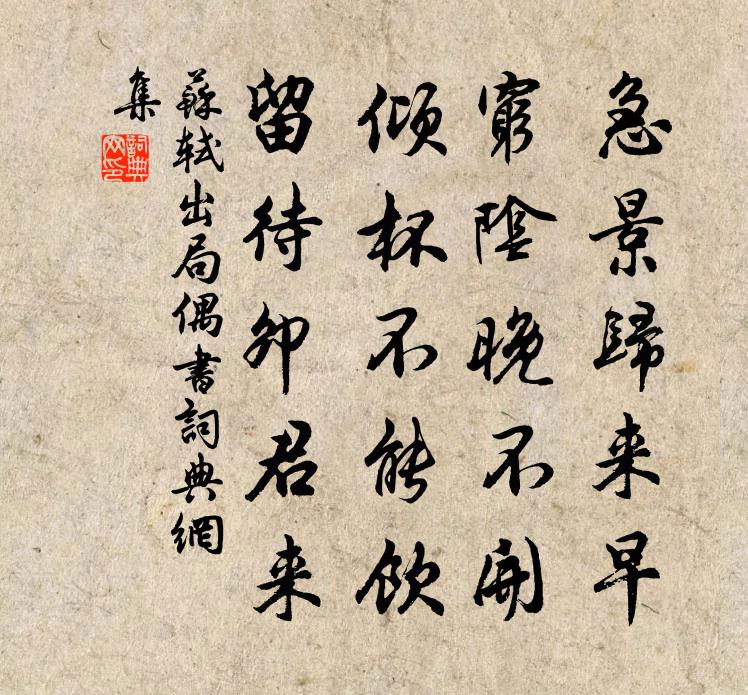 急景歸来早
窮陰晚不開
傾杯不能飲
留待卯君来
蘇軾出局偶書詞典網
集
詞典
网印